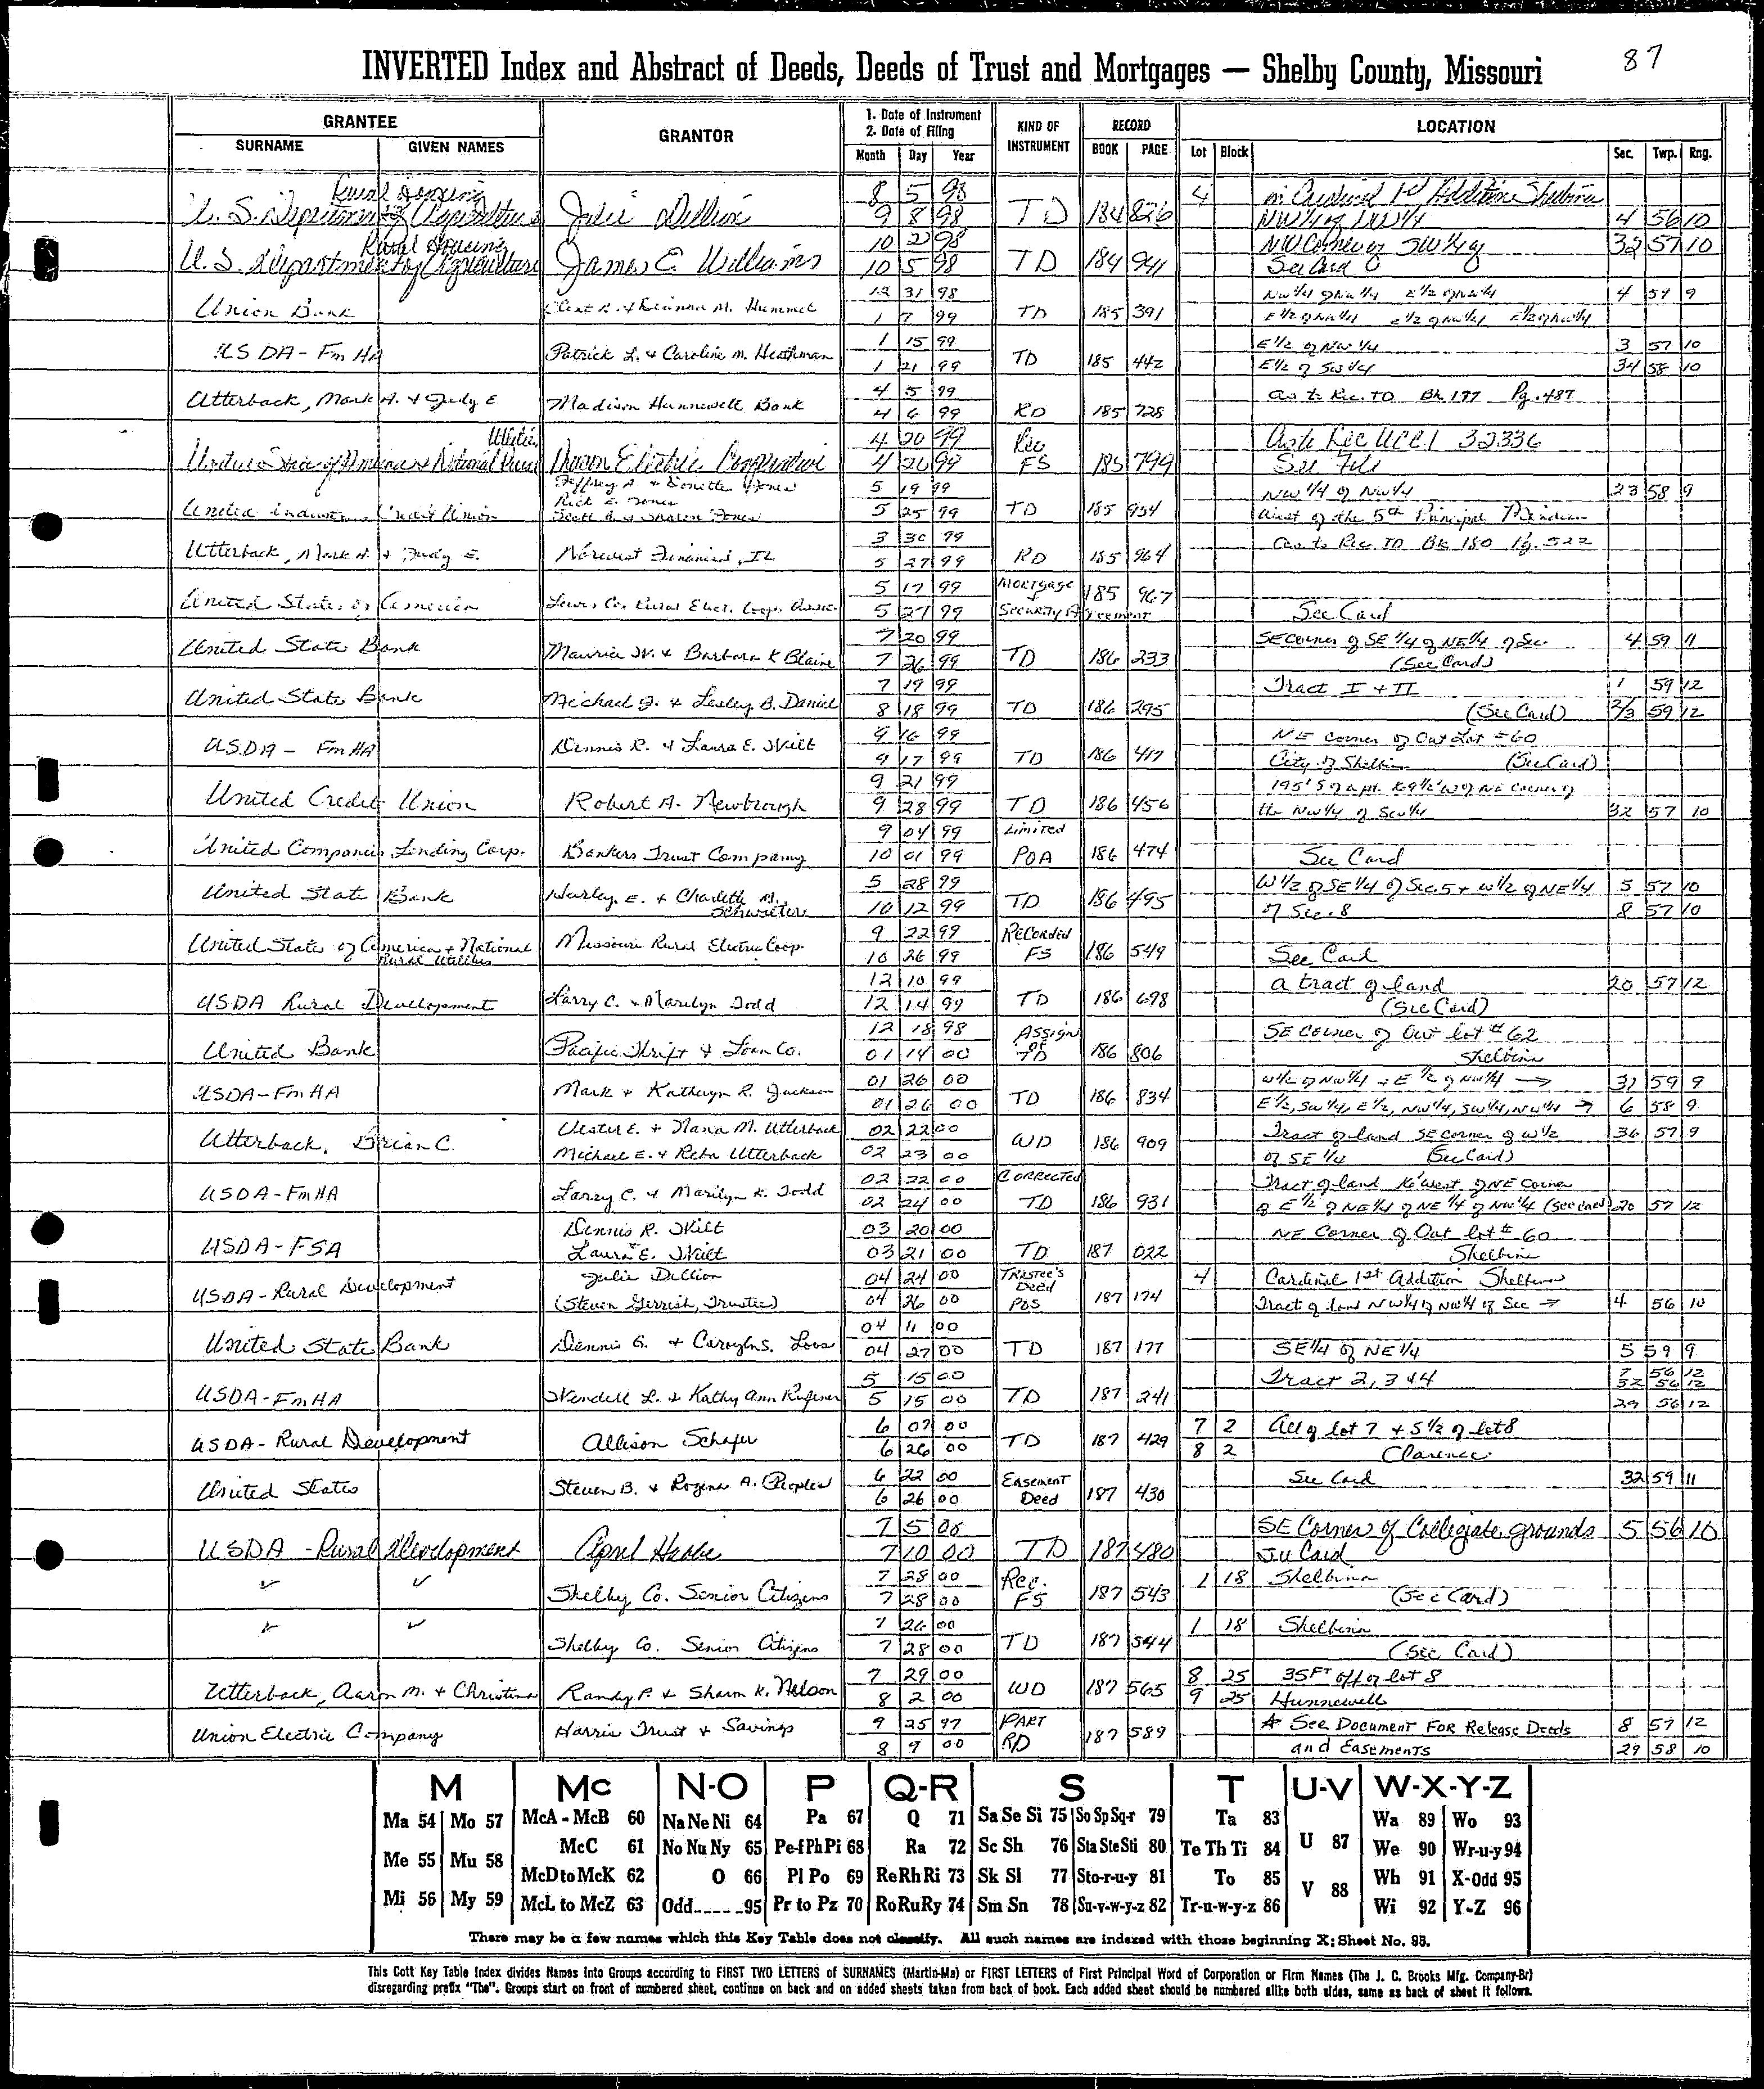 87
INVERTED Index and Abstract of Deeds, Deeds of Trust and Mortgages — Shelby County, Missouri
GRANTEE GRANTOR 1. Date of Instrument 2. Date of Filing KIND OF INSTRUMENT RECORD LOCATION
SURNAME GIVEN NAMES Month Day Year BOOK PAGE Lot Block Sec. Twp. Rng.
Rural Housing 8 5 98 4 in Cardinal 1st Addition Shelbina
U.S. Department of Agriculture Julie Dillion 9 8 98 TD 184 826 NW 1/4 of NW 1/4 4 56 10
Rural Housing 10 2 98 NW Corner of SW 1/4 of 32 57 10
U.S. Department of Agriculture James E. Williams 10 5 98 TD 184 941 See Card
12 31 98 NW 1/4 of NW 1/4 E 1/2 of NW 1/4 4 57 9
Union Bank M. Hummel 1 7 99 TD 185 391 E 1/2 of NW 1/4 E 1/2 of NW 1/4 E 1/2 of NW 1/4
1 15 99 E 1/2 of NW 1/4 3 57 10
USDA-FmHA Patrick L. & Caroline M. Heathman 1 21 99 TD 185 442 E 1/2 of SW 1/4 34 58 10
4 5 99 as to Rec. TD Bk 177 Pg. 487
Utterback, Mark A. & Judy E. Madison Hunnewell Bank 4 6 99 RD 185 728
Utilities 4 20 99 Rec As to Rec UCC1 32336
United States of America & National Rural Macon Electric Cooperative 4 26 99 FS 185 799 See File
Jeffrey A & Donette Jones 5 19 99 NW 1/4 of NW 1/4 23 58 9
Rick E. Jones
United Industries Credit Union Scott B. & Sharon Jones 5 25 99 TD 185 954 West of the 5th Principal Meridian
3 30 99 as to Rec TD Bk 180 Pg. 522
Utterback, Mark A. & Judy E. Norwest Financial, IL 5 27 99 RD 185 964
5 17 99 Mortgage &
United States of America Lewis Co. Rural Elect. Coop. Assoc. 5 27 99 Security Agreement 185 967 See Card
7 20 99 SE Corner of SE 1/4 of NE 1/4 of Sec. 4 59 11
United State Bank Maurice W. & Barbara K Blaine 7 26 99 TD 186 233 (See Card)
7 19 99 Tract I & II 1 59 12
United State Bank Michael J. & Lesley B. Daniel 8 18 99 TD 186 295 (See Card) 2/3 59 12
9 16 99 NE corner of Out Lot #60
USDA - FmHA Dennis R. & Laura E. Wilt 9 17 99 TD 186 417 City of Shelbina (See Card)
9 21 99 195' S of a pt. 169 1/2' W of NE corner of
United Credit Union Robert A. Newbrough 9 28 99 TD 186 456 the NW 1/4 of SW 1/4 32 57 10
9 04 99 Limited
United Companies Lending Corp. Bankers Trust Company 10 01 99 POA 186 474 See Card
5 28 99 W 1/2 of SE 1/4 of Sec. 5 + W 1/2 of NE 1/4 5 57 10
United State Bank Harley E. & Charlotte M. Schwieter 10 12 99 TD 186 495 of Sec. 8 8 57 10
9 22 99 Recorded
United States of America & National Rural Utilities Missouri Rural Electric Coop. 10 26 99 FS 186 549 See Card
12 10 99 a tract of land 20 57 12
USDA Rural Development Larry C. & Marilyn Todd 12 14 99 TD 186 698 (See Card)
12 18 98 Assign of SE Corner of Out lot #62
United Bank Pacific Thrift & Loan Co. 01 14 00 TD 186 806 Shelbina
01 26 00 W 1/2 of NW 1/4 + E 1/2 of NW 1/4 → 31 59 9
USDA-FmHA Mark & Kathryn R. Jackson 01 26 00 TD 186 834 E 1/2, SW 1/4, E 1/2, NW 1/4, SW 1/4, NW 1/4 → 6 58 9
Vester E. & Nana M. Utterback 02 22 00 Tract of land SE corner of W 1/2 36 57 9
Utterback, Brian C. Michael E. & Reba Utterback 02 23 00 WD 186 909 of SE 1/4 (See Card)
02 22 00 Corrected Tract of land 16' west of NE Corner
USDA-FmHA Larry C. & Marilyn K. Todd 02 24 00 TD 186 931 of E 1/2 of NE 1/4 of NE 1/4 of NW 1/4 (See Card) 20 57 12
Dennis R. Wilt 03 20 00 NE Corner of Out lot #60
USDA-FSA Laura E. Wilt 03 21 00 TD 187 022 Shelbina
Julie Dillion 04 24 00 Trustee's Deed 4 Cardinal 1st Addition Shelbina
USDA-Rural Development (Steven Gerrish, Trustee) 04 26 00 POS 187 174 Tract of land NW 1/4 of NW 1/4 of Sec → 4 56 10
04 11 00
United State Bank Dennis G. & Carolyn S. Loos 04 27 00 TD 187 177 SE 1/4 of NE 1/4 5 59 9
5 15 00 Tract 2, 3 & 4 56 12
32 56 12
USDA-FmHA Wendell L. & Kathy Ann Rufener 5 15 00 TD 187 241 29 56 12
6 07 00 7 2 All of lot 7 + S 1/2 of lot 8
USDA-Rural Development Allison Schafer 6 26 00 TD 187 429 8 2 Clarence
6 22 00 Easement See Card 32 59 11
United States Steven B. & Rogene A. Peoples 6 26 00 Deed 187 430
7 5 00 SE Corner of Collegiate grounds 5 56 10
USDA - Rural Development April 7 10 00 TD 187 480 See Card
✓ ✓ 7 28 00 Rec. 1 18 Shelbina
Shelby Co. Senior Citizens 7 28 00 FS 187 543 (See Card)
✓ ✓ 7 26 00 1 18 Shelbina
Shelby Co. Senior Citizens 7 28 00 TD 187 544 (See Card)
7 29 00 8 25 35 FT off of lot 8
Utterback, Aaron M. & Christina Randy P. & Sharon K. Nelson 8 2 00 WD 187 565 9 25 Hunnewell
9 25 97 PART * See Document For Release Deeds 8 57 12
Union Electric Company Harris Trust & Savings 8 9 00 RD 187 589 and Easements 29 58 10
M Mc N-O P Q-R S T U-V W-X-Y-Z
Ma 54 Mo 57 McA - McB 60 Na Ne Ni 64 Pa 67 Q 71 Sa Se Si 75 So Sp Sq-r 79 Ta 83 Wa 89 Wo 93
Me 55 Mu 58 McC 61 No Nu Ny 65 Pe-f Ph Pi 68 Ra 72 Sc Sh 76 Sta Ste Sti 80 Te Th Ti 84 U 87 We 90 Wr-u-y 94
McD to McK 62 O 66 Pl Po 69 Re Rh Ri 73 Sk Sl 77 Sto-r-u-y 81 To 85 Wh 91 X-Odd 95
Mi 56 My 59 McL to McZ 63 Odd 95 Pr to Pz 70 Ro Ru Ry 74 Sm Sn 78 Su-v-w-y-z 82 Tr-u-w-y-z 86 V 88 Wi 92 Y-Z 96
There may be a few names which this Key Table does not classify. All such names are indexed with those beginning X; Sheet No. 95.
This Cott Key Table Index divides Names Into Groups according to FIRST TWO LETTERS of SURNAMES (Martin-Ma) or FIRST LETTERS of First Principal Word of Corporation or Firm Names (The J. C. Brooks Mfg. Company-Br)
disregarding prefix "The". Groups start on front of numbered sheet, continue on back and on added sheets taken from back of book. Each added sheet should be numbered alike both sides, same as back of sheet it follows.